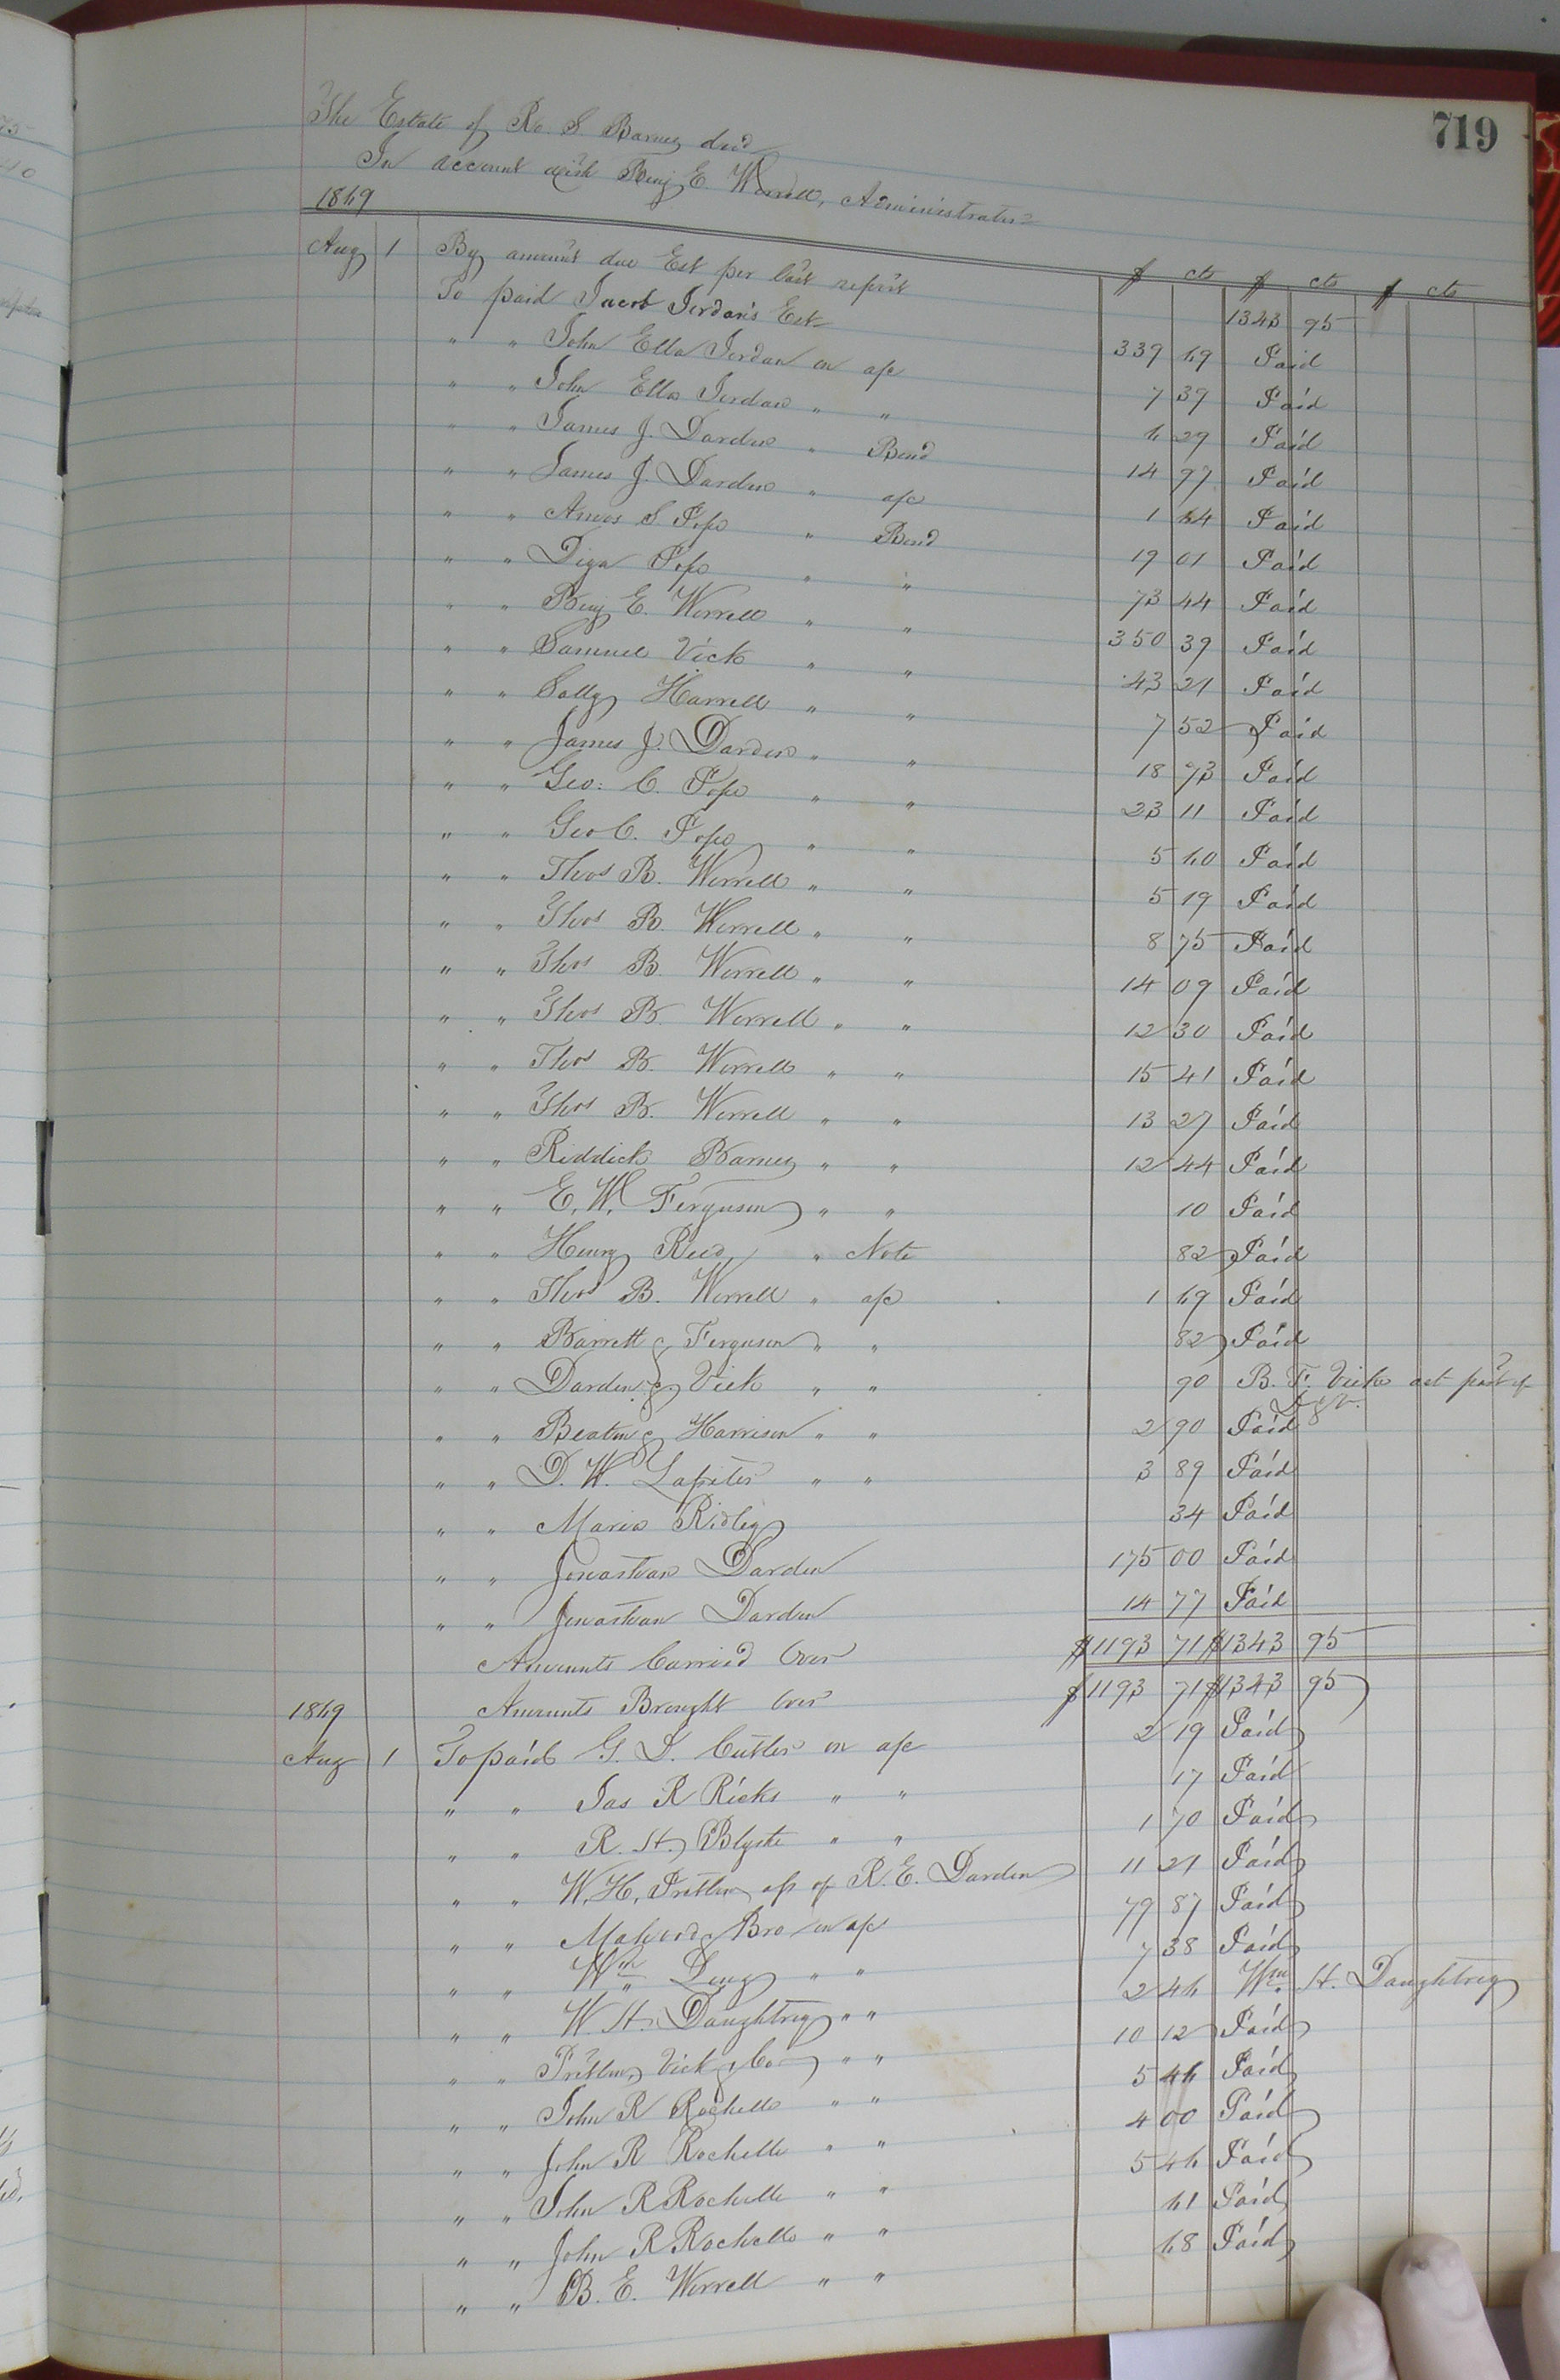 719
The Estate of Ro. S Barnes decd
In account with Benj E. Worrell, Administrator
1869
$ cts $ cts $ cts
Aug 1 By amount due Est per last report 1343 95
To paid Jacob Jordan's Est 339 69 Paid
" " John Ella Jordan on a/c 7 37 Paid
" " John Ella Jordan " " 6 29 Paid
" " James J. Darden " Bond 14 97 Paid
" " James J. Darden " a/c 1 64 Paid
" " Amos S. Pope " Bond 19 01 Paid
" " Diza Pope " " 73 44 Paid
" " Benj E. Worrell " " 350 39 Paid
" " Samuel Vick " " 43 21 Paid
" " Sally Harrell " " 7 52 Paid
" " James J. Darden " " 18 93 Paid
" " Geo. C. Pope " " 23 11 Paid
" " Geo C. Pope " " 5 60 Paid
" " Thos B. Worrell " " 5 19 Paid
" " Thos B. Worrell " " 8 75 Paid
" " Thos B. Worrell " " 14 09 Paid
" " Thos B. Worrell " " 12 30 Paid
" " Thos B. Worrell " " 15 41 Paid
" " Thos B. Worrell " " 13 27 Paid
" " Riddick Barnes " " 12 44 Paid
" " E. W. Ferguson " " 10 Paid
" " Henry Reed " Note 82 Paid
" " Thos B. Worrell " a/c 1 69 Paid
" " Barrett & Ferguson " " 82 Paid
" " Darden & Vick " " 90 B. F. Vick act part of
D & V.
" " Beaton & Harrison " " 2 90 Paid
" " D. W. Lapiter " " 3 89 Paid
" " Maria Ridley 34 Paid
" " Jonathan Darden 175 00 Paid
" " Jonathan Darden 14 77 Paid
Amounts Carried Over $1193 71 $1343 95
1869 Amounts Brought Over $1193 71 $1343 95
Aug 1 To paid G. D. Cutler on a/c 2 19 Paid
" " Jas R Ricks " " 17 Paid
" " R. H. Blythe " " 1 70 Paid
" " W. H. Pretlow a/s of R. E. Darden 11 21 Paid
" " Mahood & Bro on a/c 79 87 Paid
" " Wm Long " " 7 38 Paid
" " W. H. Daughtrey " " 2 46 Wm. H. Daughtrey
" " Pretlow, Vick & Co " " 10 12 Paid
" " John R Rochelle " " 5 46 Paid
" " John R Rochelle " " 4 00 Paid
" " John R Rochelle " " 5 46 Paid
" " John R Rochelle " " 61 Paid
" " B. E. Worrell " " 68 Paid